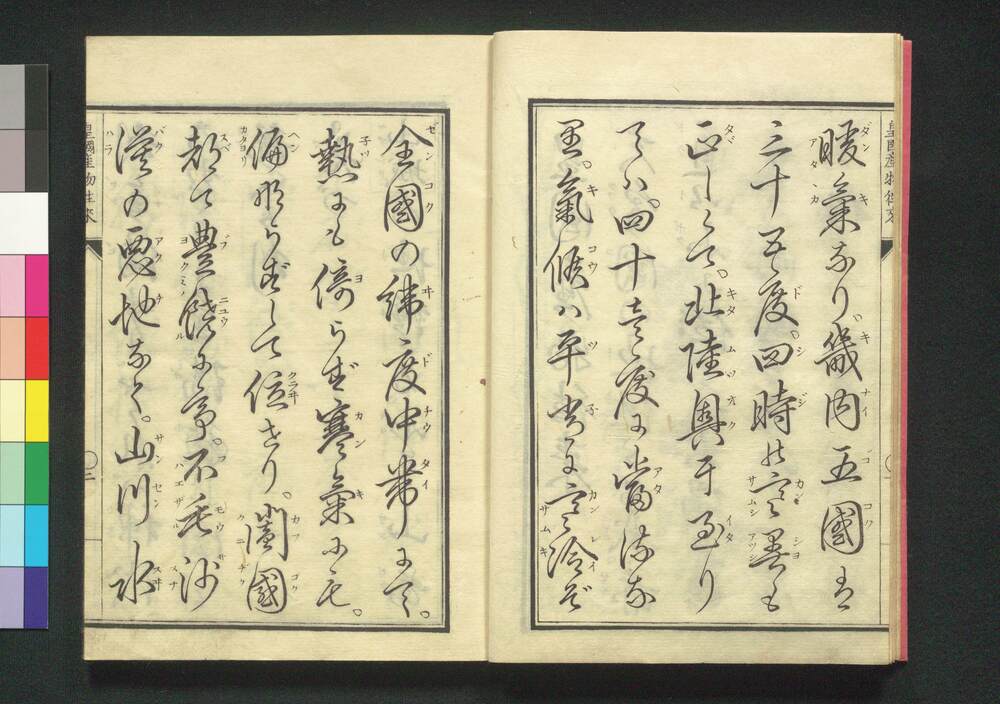 皇國産物往來
暖氣なり。畿内五國は
三十五度。四時の寒暑も
正しくて。北陸奥 至り
ては。四十壱度に當るな
り。氣候は平常に寒冷ぞ
全國の緯度中帯にて。
熱にも倚らず寒氣にも。
偏ならずして位せり。闔國
都て豊饒に 不毛沙
漠の悪地なく。山川水
皇國産物往來
二